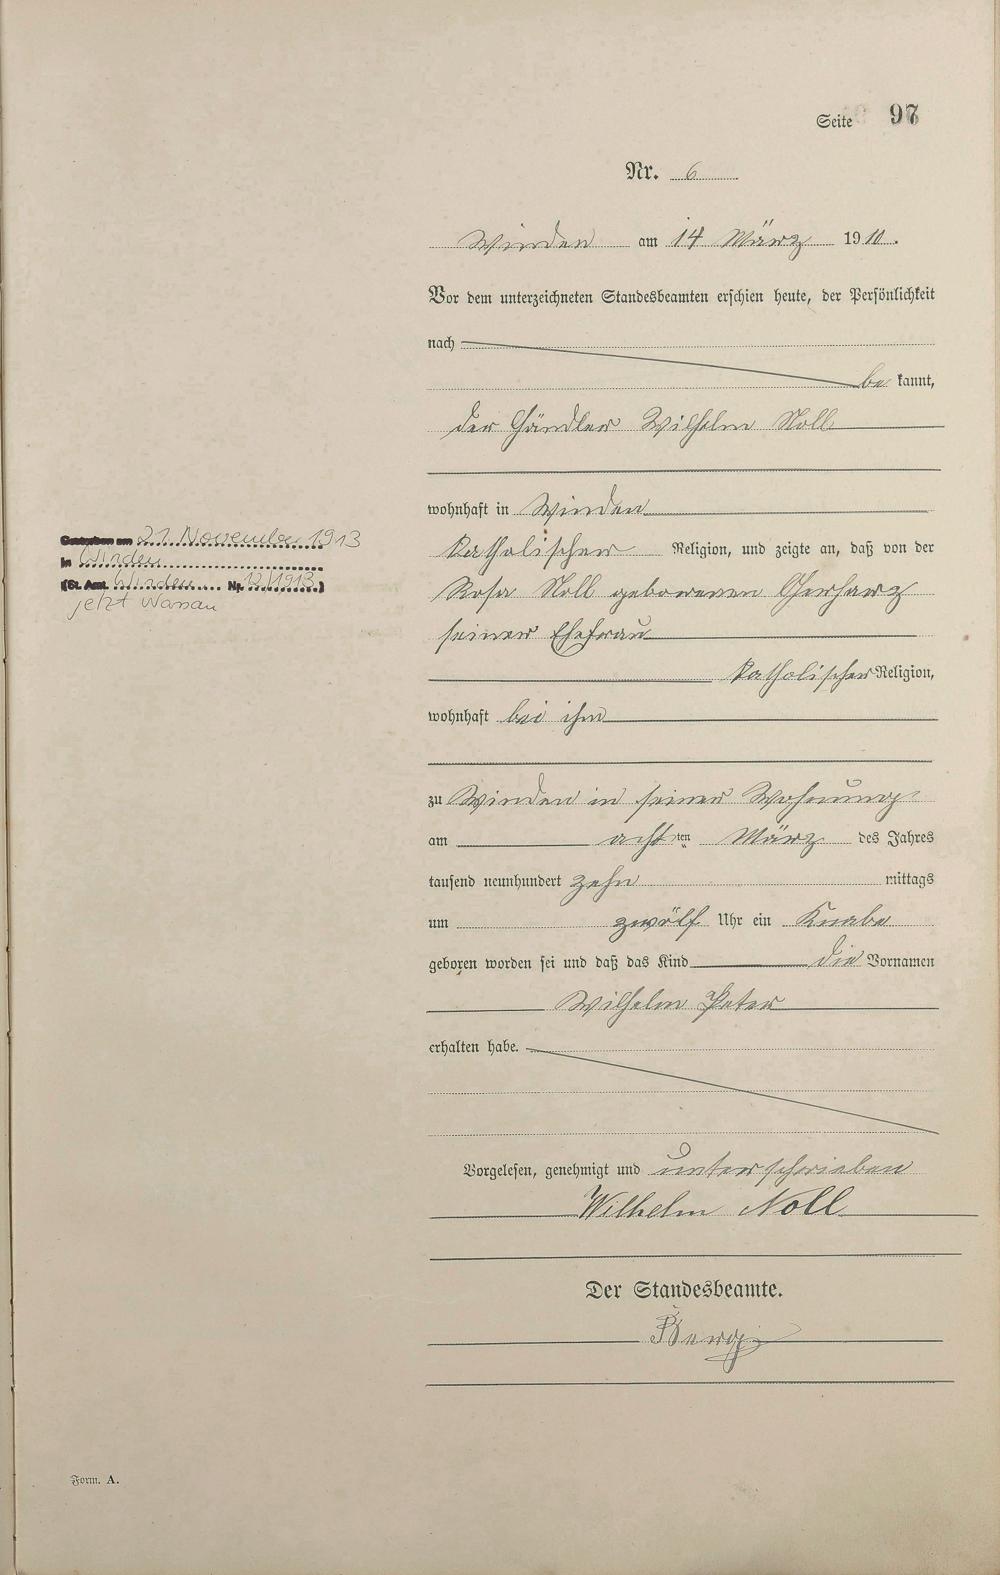 Seite 97
Nr. 6
Winden am 14 März 1910.
Vor dem unterzeichneten Standesbeamten erschien heute, der Persönlichkeit
nach
be kannt,
der Händler Wilhelm Noll
wohnhaft in Winden
katholischer Religion, und zeigte an, daß von der
Rosa Noll geborenen Gerharz
seiner Ehefrau
katholischer Religion,
wohnhaft bei ihm
zu Winden in seiner Wohnung
am achtten März des Jahres
tausend neunhundert zehn mittags
um zwölf Uhr ein Knabe
geboren worden sei und daß das Kind die Vornamen
Wilhelm Peter
erhalten habe.
Vorgelesen, genehmigt und unterschrieben
Wilhelm Noll
Der Standesbeamte.
Gestorben am 21. November 1913
in Winden
(St. Amt. Winden Nr. 12/1913)
jetzt
Form. A.